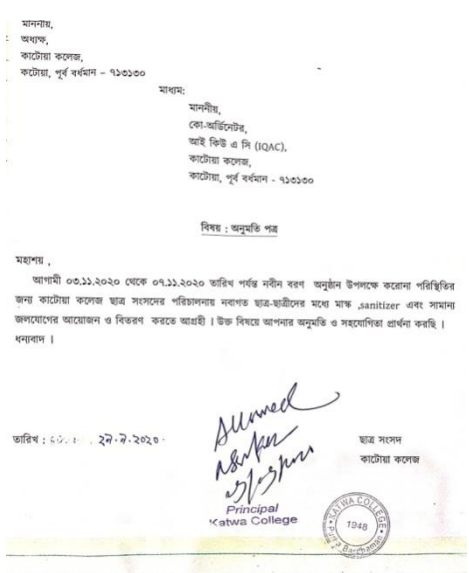 মাননীয়,
অধ্যক্ষ,
কাটোয়া কলেজ,
কটোয়া, পূর্ব বর্ধমান - ৭১৩১৩০
মাধ্যম:
মাননীয়,
কো-অর্ডিনেটর,
আই কিউ এ সি (IQAC),
কাটোয়া কলেজ,
কাটোয়া, পূর্ব বর্ধমান - ৭১৩১৩০
বিষয় : অনুমতি পত্র
মহাশয় ,
আগামী ০৩.১১.২০২০ থেকে ০৭.১১.২০২০ তারিখ পর্যন্ত নবীন বরণ অনুষ্ঠান উপলক্ষে করোনা পরিস্থিতির
জন্য কাটোয়া কলেজ ছাত্র সংসদের পরিচালনায় নবাগত ছাত্র-ছাত্রীদের মধ্যে মাস্ক ,sanitizer এবং সামান্য
জলযোগের আয়োজন ও বিতরণ করতে আগ্রহী । উক্ত বিষয়ে আপনার অনুমতি ও সহযোগিতা প্রার্থনা করছি ।
ধন্যবাদ ।
Allowed
তারিখ : ২৯.৯.২০২০
ছাত্র সংসদ
কাটোয়া কলেজ
Principal
Katwa College
KATWA COLLEGE
1948
Purba Bardhaman